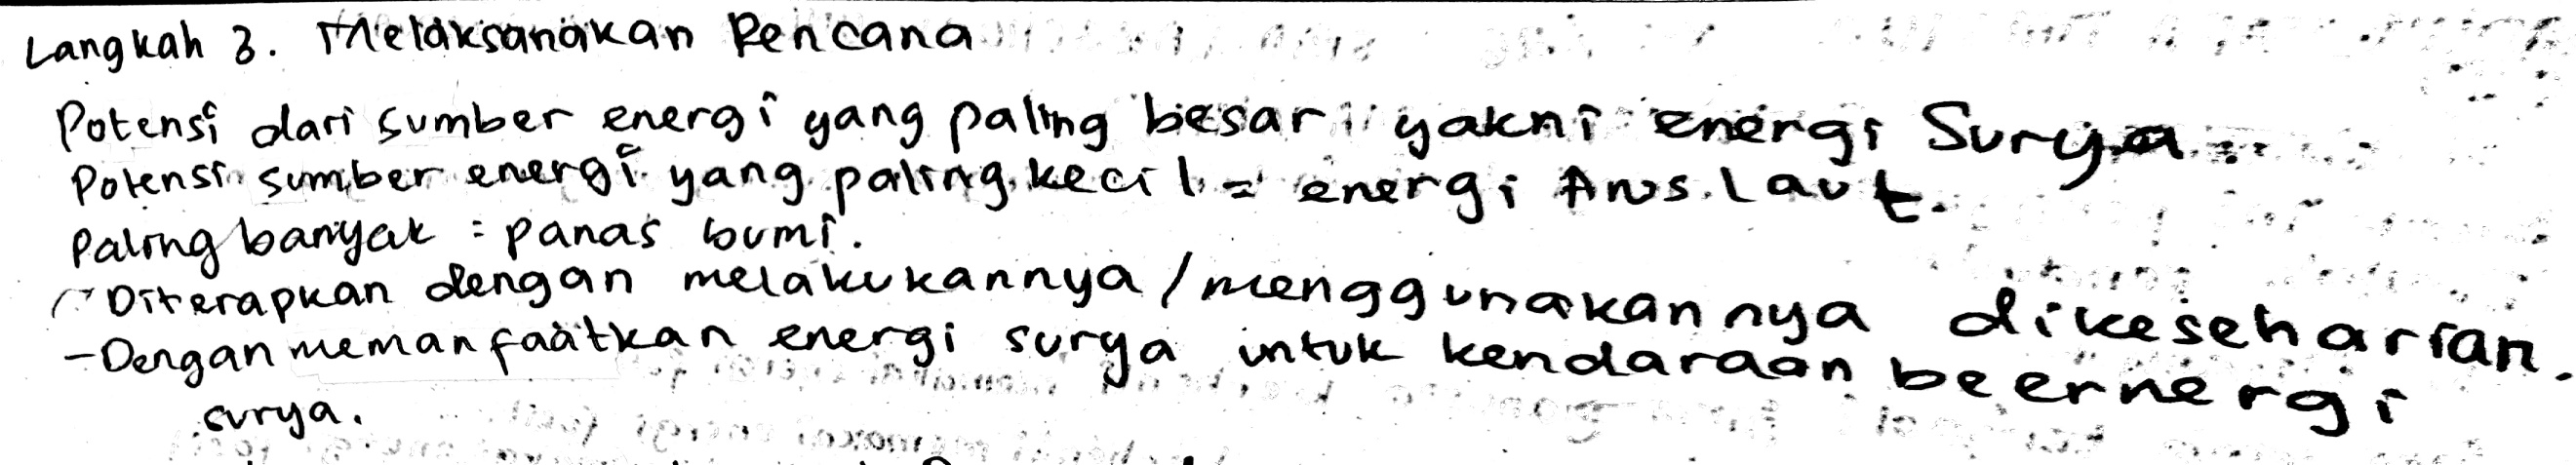 Langkah 3. Melaksanakan Rencana
Potensi dari sumber energi yang paling besar yakni energi Surya.
Potensi sumber energi yang paling kecil = energi Arus Laut.
Paling banyak : panas bumi.
- Diterapkan dengan melakukannya / menggunakannya dikeseharian.
- Dengan memanfaatkan energi surya untuk kendaraan beernergi
surya.